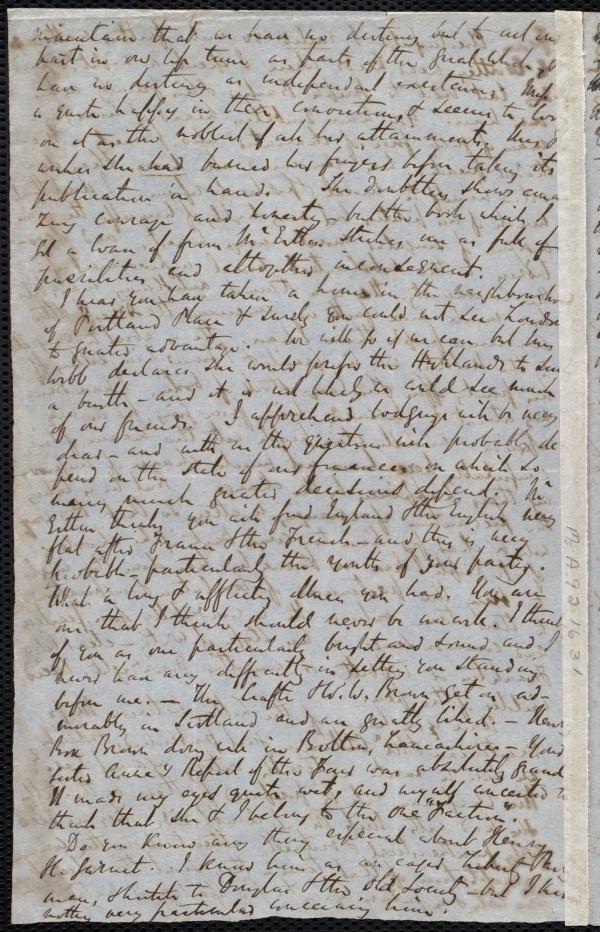 maintain that we have no destiny but to act our
part in our life time as parts of the great whole, &
have no destiny as independent existences. Miss
is quite happy in these convictions, & seems to look
on it as the noblest of all her attainments. Mrs
wishes she had burned her fingers before taking its
publication in hand. She doubtless shows ama
zing courage and honesty - but the book which I
got a loan of from Mr Estlin strikes me as full of
puerilities and altogether inconsequent.
I hear you have taken a house in the neighbourhood
of Portland Place & surely you could not see London
to greater advantage. We will go if we can but
Webb declares she would prefer the Highlands to such
a bustle - and it is not likely we could see much
of our friends. I apprehend lodgings will be very
dear - and with us the question will probably de
pend on the state of our finances on which so
many much greater decisions depend. Mr
Estlin thinks you will find England & the English very
flat after France & the French - and this is very
probable - particularly the youth of your party.
What a long & afflicting illness you had. You are
one that I think should never be unwell. I think
of you as one particularly bright and sound and I
never have any difficulty in setting you standing
before me. - The Crafts & W. W. Brown get on ad-
mirably in Scotland and are greatly liked. - Henry
Box Brown doing well in Bolton, Lancashire - Your
sister Anne's Report of the Fair was absolutely grand
It made my eyes quite wet, and myself conceited to
think that she & I belong to the one "Faction".
Do you know any thing especial about Henry
H. Garnet. I know him as an eager Liberty Party
man, hostile to Douglass & the old Society but I know
nothing very particular concerning him.
Ms A.9.2 v.